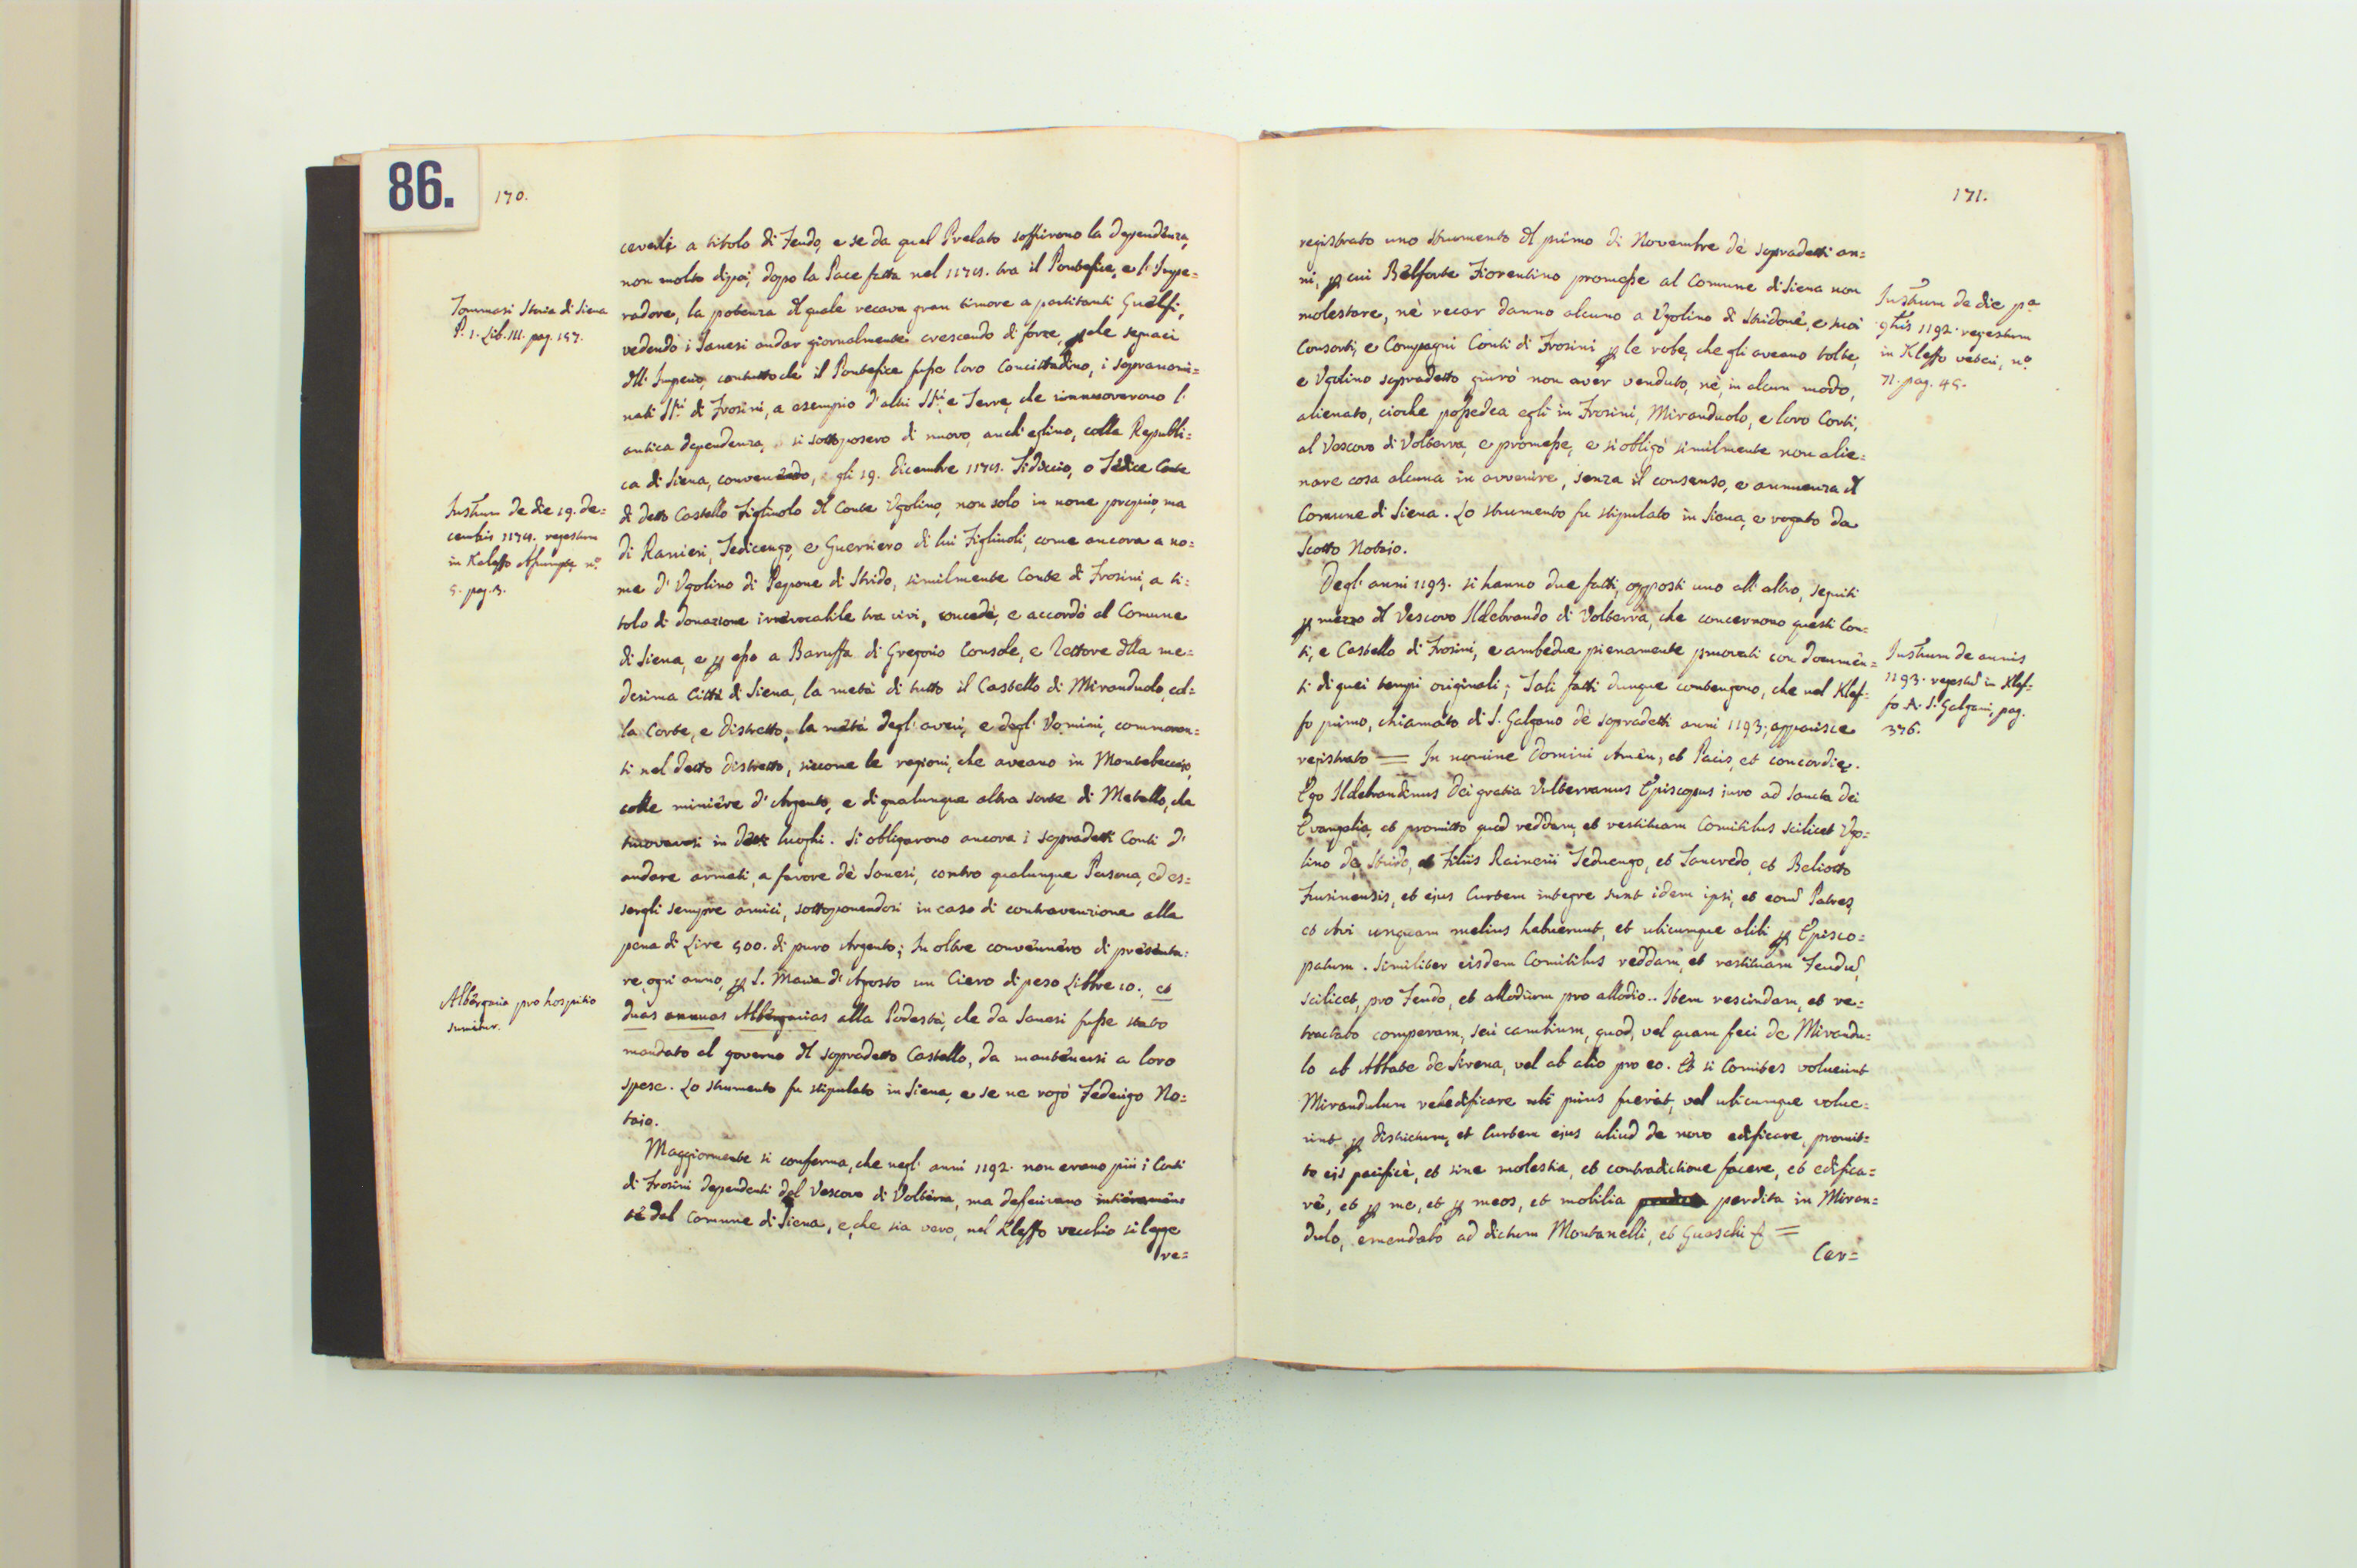 86.
170.
ceverli a titolo di Feudo, e se da quel Prelato soffrirono la dependenza,
non molto dipoi, dopo la Pace fatta nel tra il Pontefice, e l'Impe=
radore, la potenza dl quale recava gran timore a partitanti Guelfi,
vedendo i Sanesi andar giornalmente crescendo di forze, ple seguaci
dll' Imperio, contuttoche il Pontefice fusse loro Concittadino, i sopranomi=
nati SSri di Frosini, a esempio d'altri SSri e Terre, che rinnuoverono l'
antica dependenza, si sottoposero di nuovo, anch'eglino, colla Republi=
ca di Siena, convenendo, gli 19. Dicembre Tediccio, o Tedice Conte
di detto Castello Figliuolo dl Conte Ugolino, non solo in nome proprio, ma
di Ranieri, Tedicengo, e Guerriero di lui Figliuoli, come ancora a no=
me d'Ugolino di Pepone di Strido, similmente Conte di Frosini, a ti=
tolo di donazione irrevocabile tra vivi, concedè, e accordò al Comune
di Siena, e p esso a Baruffa di Gregorio Console, e Rettore dlla me=
desima Città di Siena, la metà di tutto il Castello di Miranduolo, col=
la Corte, e Distretto, la metà degl'averi, e degl'Uomini, commoran=
ti nel detto distretto, siccome le ragioni, che aveano in Montebeccaro,
colle miniere d'Argento, e di qualunque altra sorte di Metallo, che
truovavasi in detti luoghi. Si obligarono ancora i sopradetti Conti d'
andare armati, a favore de Sanesi, contro qualunque Persona, ed es=
sergli sempre amici, sottoponendosi in caso di contravenzione alla
pena di Lire 500. di puro Argento; In oltre convennero di presenta=
re, ogni anno, p S. Maria d'Agosto un Ciero di peso Libbre 10., et
duas annuas Albergarias alla Podestà, che da Sanesi fusse stato
mandato al governo dl sopradetto Castello, da mantenersi a loro
spese. Lo strumento fu stipulato in Siena, e se ne rogò Federigo No=
taio.
Maggiormente si conferma, che negl'anni 1192. non erano più i Conti
di Frosini dependenti del Vescovo di Volterra, ma intieramen=
te dal Comune di Siena, e, che sia vero, nel Kleffo vecchio si legge
re=
Tommasi Storia di Siena
P. 1. Lib. III. pag. 157.
Instrum de die 19. de=
cembris regestum
in Kaleffo Assumpte nº
5. pag. 3.
Albergaria pro hospitio
sumitur.
171.
registrato uno strumento dl primo di Novembre de sopradetti an=
ni, p cui Belforte Fiorentino promesse al Comune di Siena non
molestare, nè recar danno alcuno a Ugolino di Stridone, e suoi
Consorti, e Compagni Conti di Frosini p le robe, che gli aveano tolte,
e Ugolino sopradetto giurò non aver venduto, nè, in alcun modo,
alienato, cioche possedea egli in Frosini, Miranduolo, e loro Corti,
al Vescovo di Volterra, e promesse, e si obligò similmente non alie=
nare cosa alcuna in avvenire, senza il consenso, e annuenza dl
Comune di Siena. Lo strumento fu stipulato in Siena, e rogato da
Scotto Notaio.
Degl'anni 1193. si hanno due fatti, opposti uno all'altro, seguiti
p mezzo dl Vescovo Ildebrando di Volterra, che concernono questi Con=
ti, e Castello di Frosini, e ambedue pienamente pruovati con documen=
ti di quei tempi originali; Tali fatti dunque contengono, che nel Klef=
fo primo, chiamato di S. Galgano de sopradetti anni 1193; apparisce
registrato = In nomine Domini Amen, et Pacis, et concordie.
Ego Ildebrandinus Dei gratia Vulterranus Episcopus iuro ad Sancta Dei
Evangelia, et promitto quod reddam, et restituam Comitibus scilicet Ugo=
lino de Strido, et Filiis Rainerii Teduengo, et Tancredo, et Beliotto
Frusinensis, et ejus Curtem integre sunt idem ipsi, et eorum Patres,
et Avi unquam melius habuerunt, et ubicumque alibi p Episco=
patum. Similiter eisdem Comitibus reddam, et restituam Feudum,
scilicet, pro Feudo, et allodium pro allodio.. Item rescindam, et re=
tractabo comperam, seu cambium, quod, vel quam feci de Mirandu=
lo ab Abbate de Sirena, vel ab alio pro eo. Et si Comites voluerint
Mirandulum reedificare ubi prius fuerat, vel ubicumque volue=
rint p districtum, et Curtem ejus aliud de novo edificare, promit=
to eis pacificè, et sine molestia, et contradictione facere, et edifica=
re, et p me, et p meos, et mobilia perdita in Miran=
dulo, emendabo ad dictum Montanelli, et Guaschi &c =
Cer=
Instrum de die pª
9bris 1192. regestum
in Kleffo veteri, nº
71. pag. 45.
Instrum de annis
1193. regestu in Klef=
fo A. S. Galgani, pag.
376.